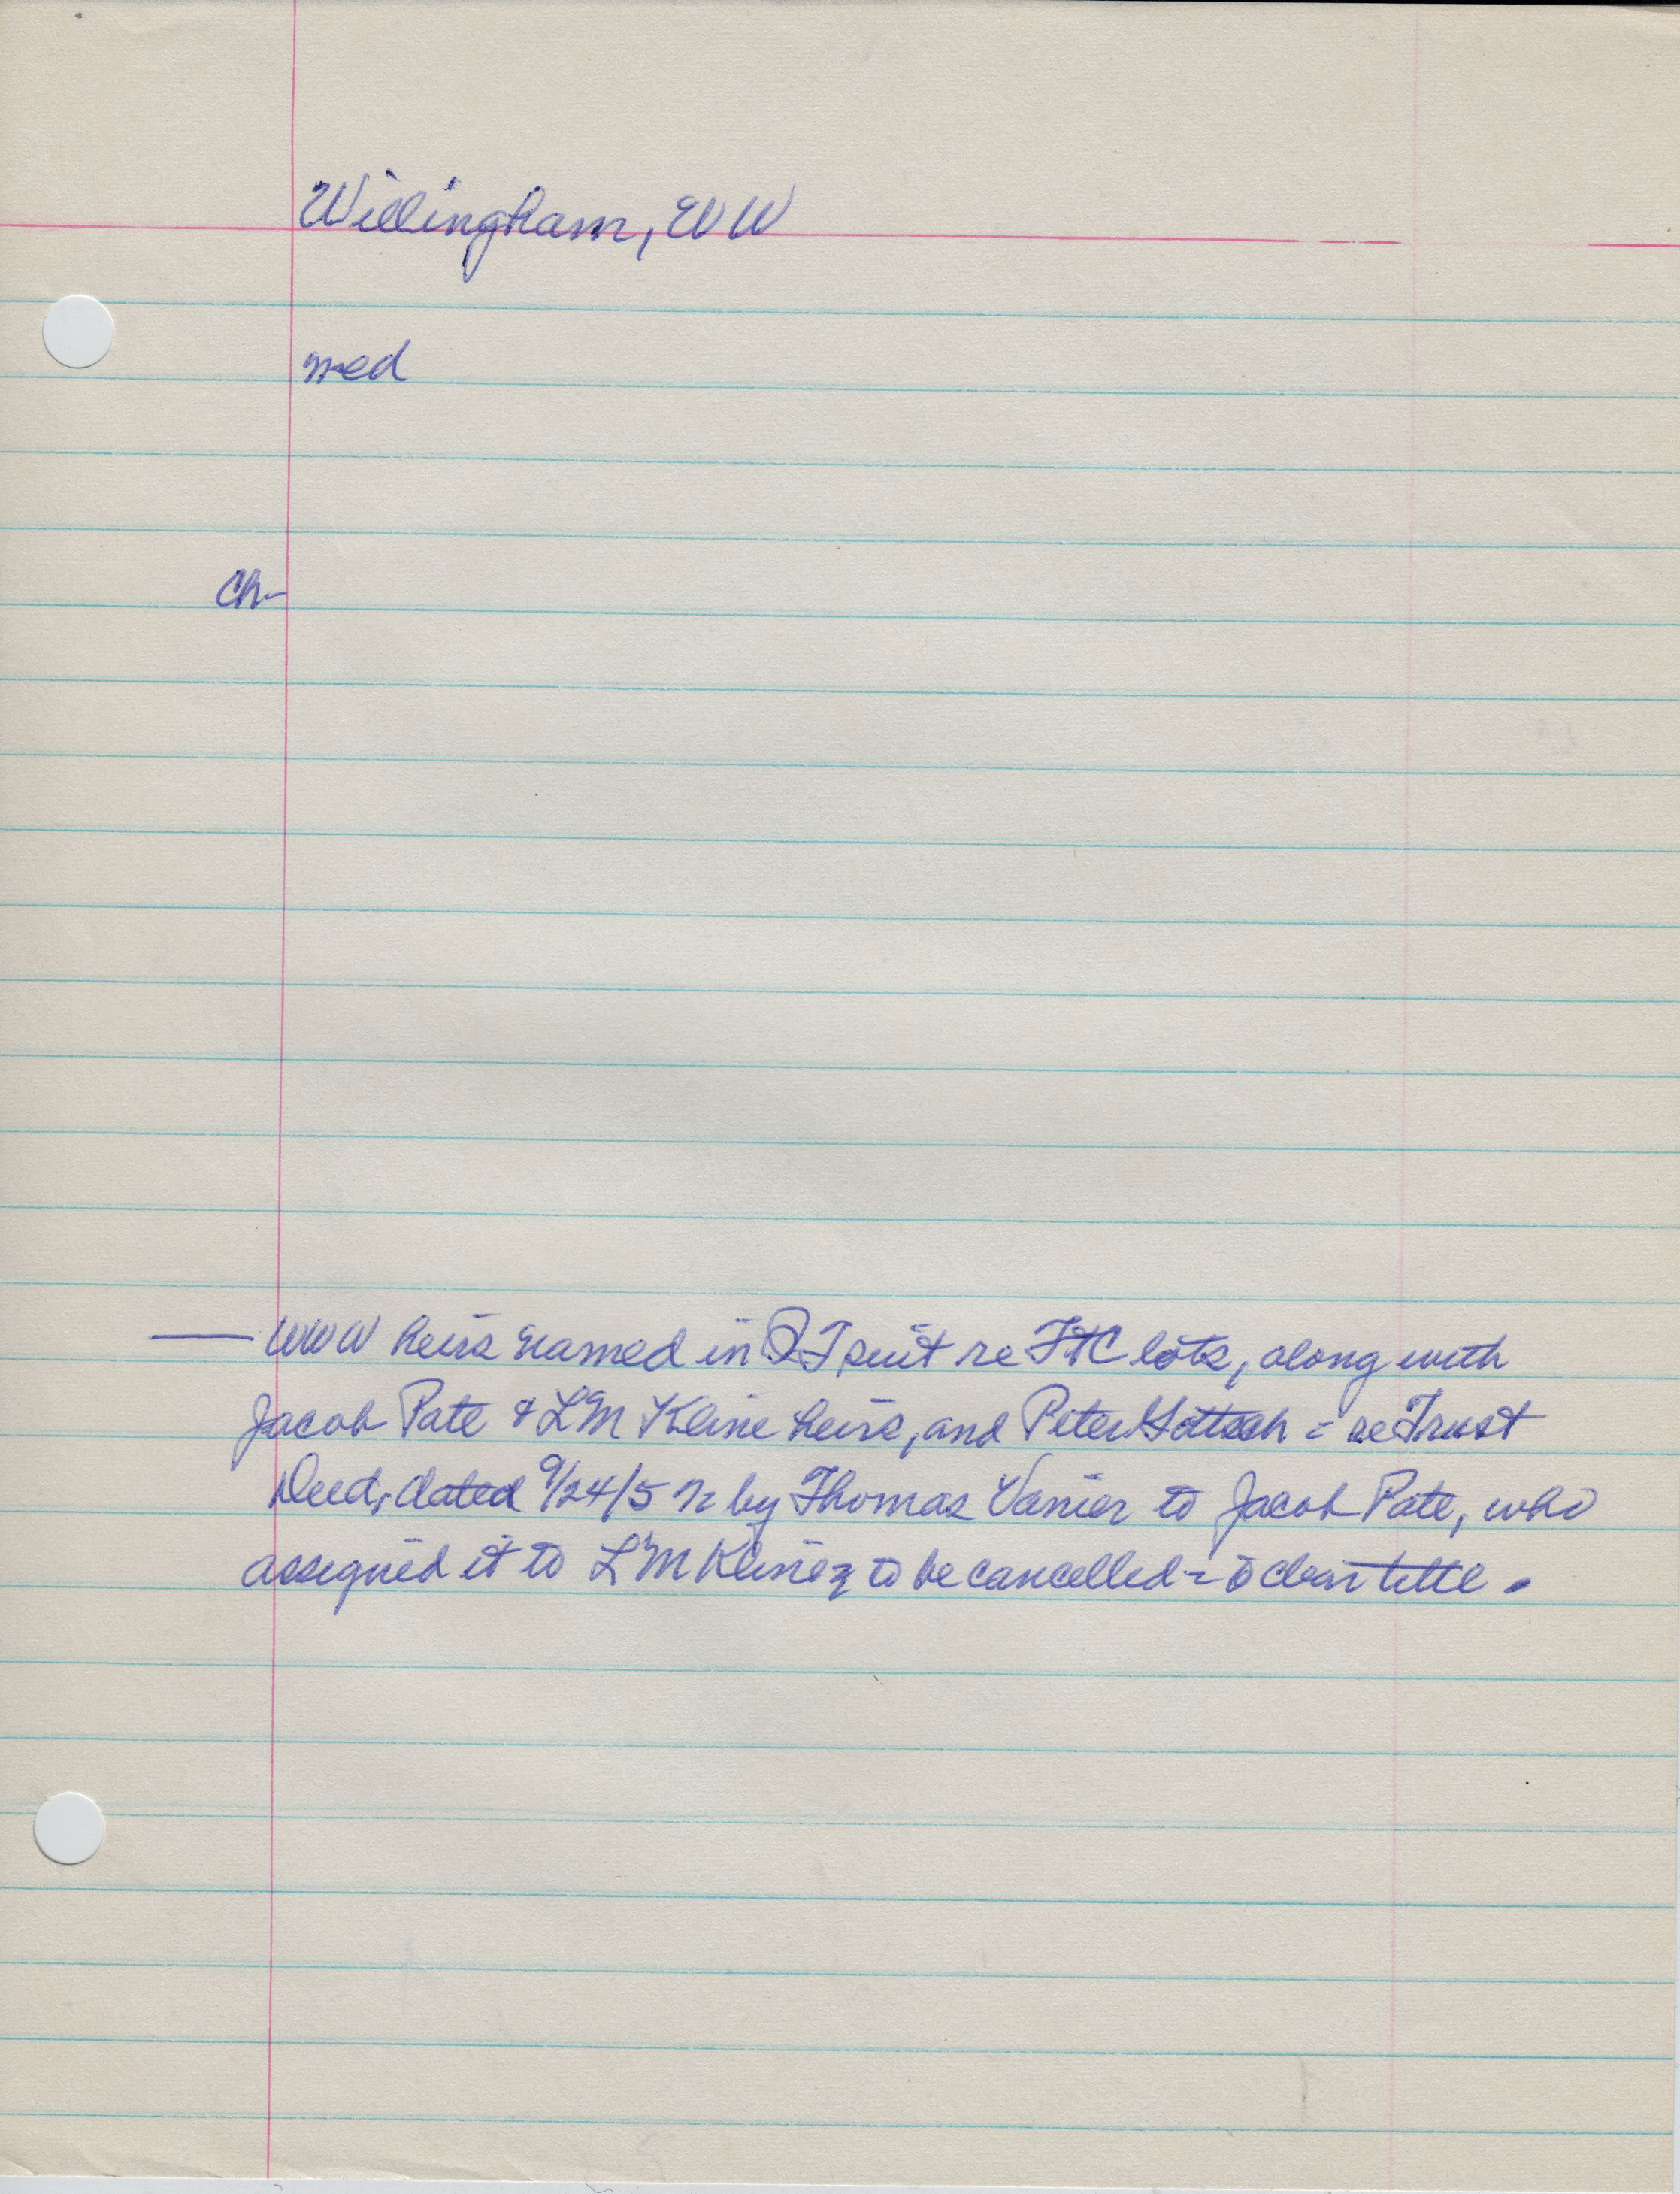 Willingham, WW
med
Ch-
— WWW heirs named in QT suit re FTC lots, along with
Jacob Pate & LM Kline heirs, and Peter Gottsch = re Trust
Deed, dated 9/24/57 by Thomas Vanier to Jacob Pate, who
assigned it to LM Kline to be cancelled = to clear title.